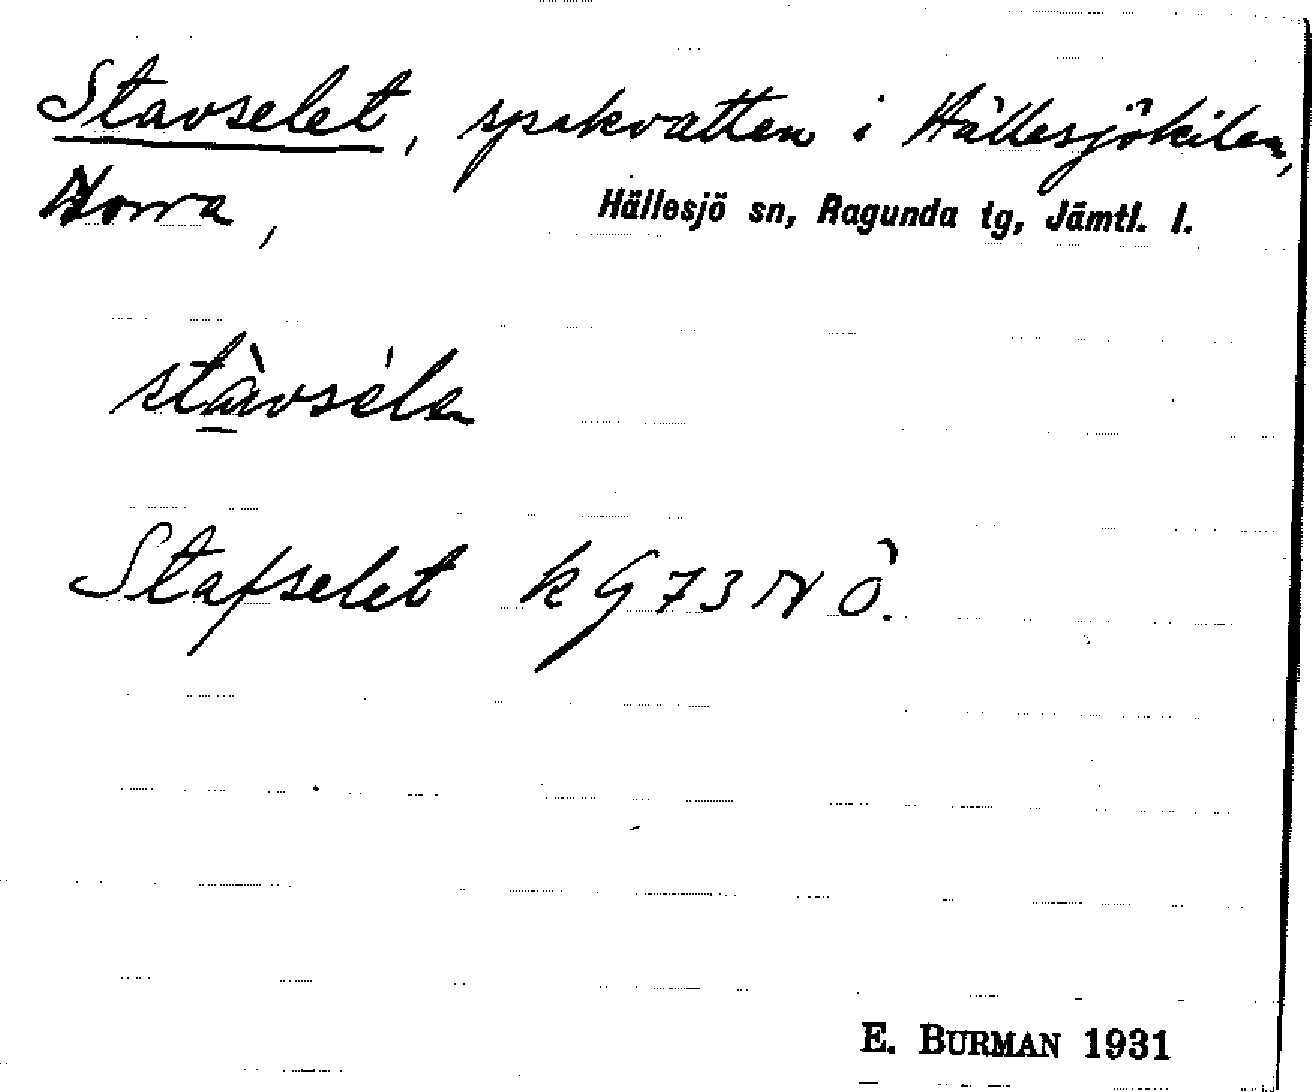 Stavselet, spakvatten i Hällesjökilen,
Norra, Hällesjö sn, Ragunda tg, Jämtl. l.
stàvséle
Stafselet k G 73 N Ö.
E. BURMAN 1931